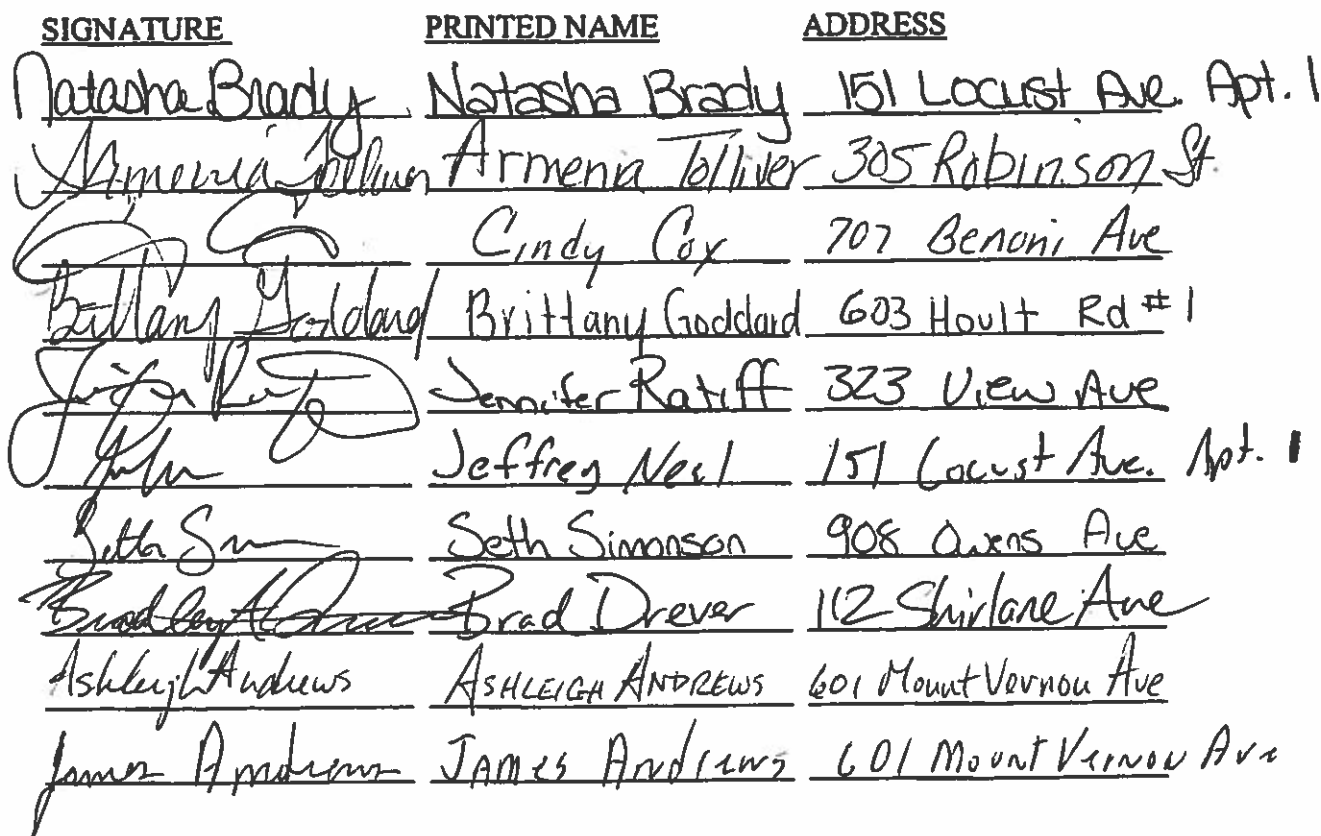 SIGNATURE PRINTED NAME ADDRESS
Natasha Brady Natasha Brady 151 Locust Ave. Apt. 1
Armenia Tolliver Armenia Tolliver 305 Robinson St.
Cindy Cox 707 Benoni Ave
Brittany Goddard Brittany Goddard 603 Hoult Rd #1
Jennifer Ratliff 323 View Ave
Jeffrey Neal 151 Locust Ave. Apt. 1
Seth Simonson 908 Owens Ave
Bradley A Brad Drever 112 Shirlane Ave
Ashleigh Andrews ASHLEIGH ANDREWS 601 Mount Vernon Ave
James Andrews JAMES Andrews 601 Mount Vernon Ave